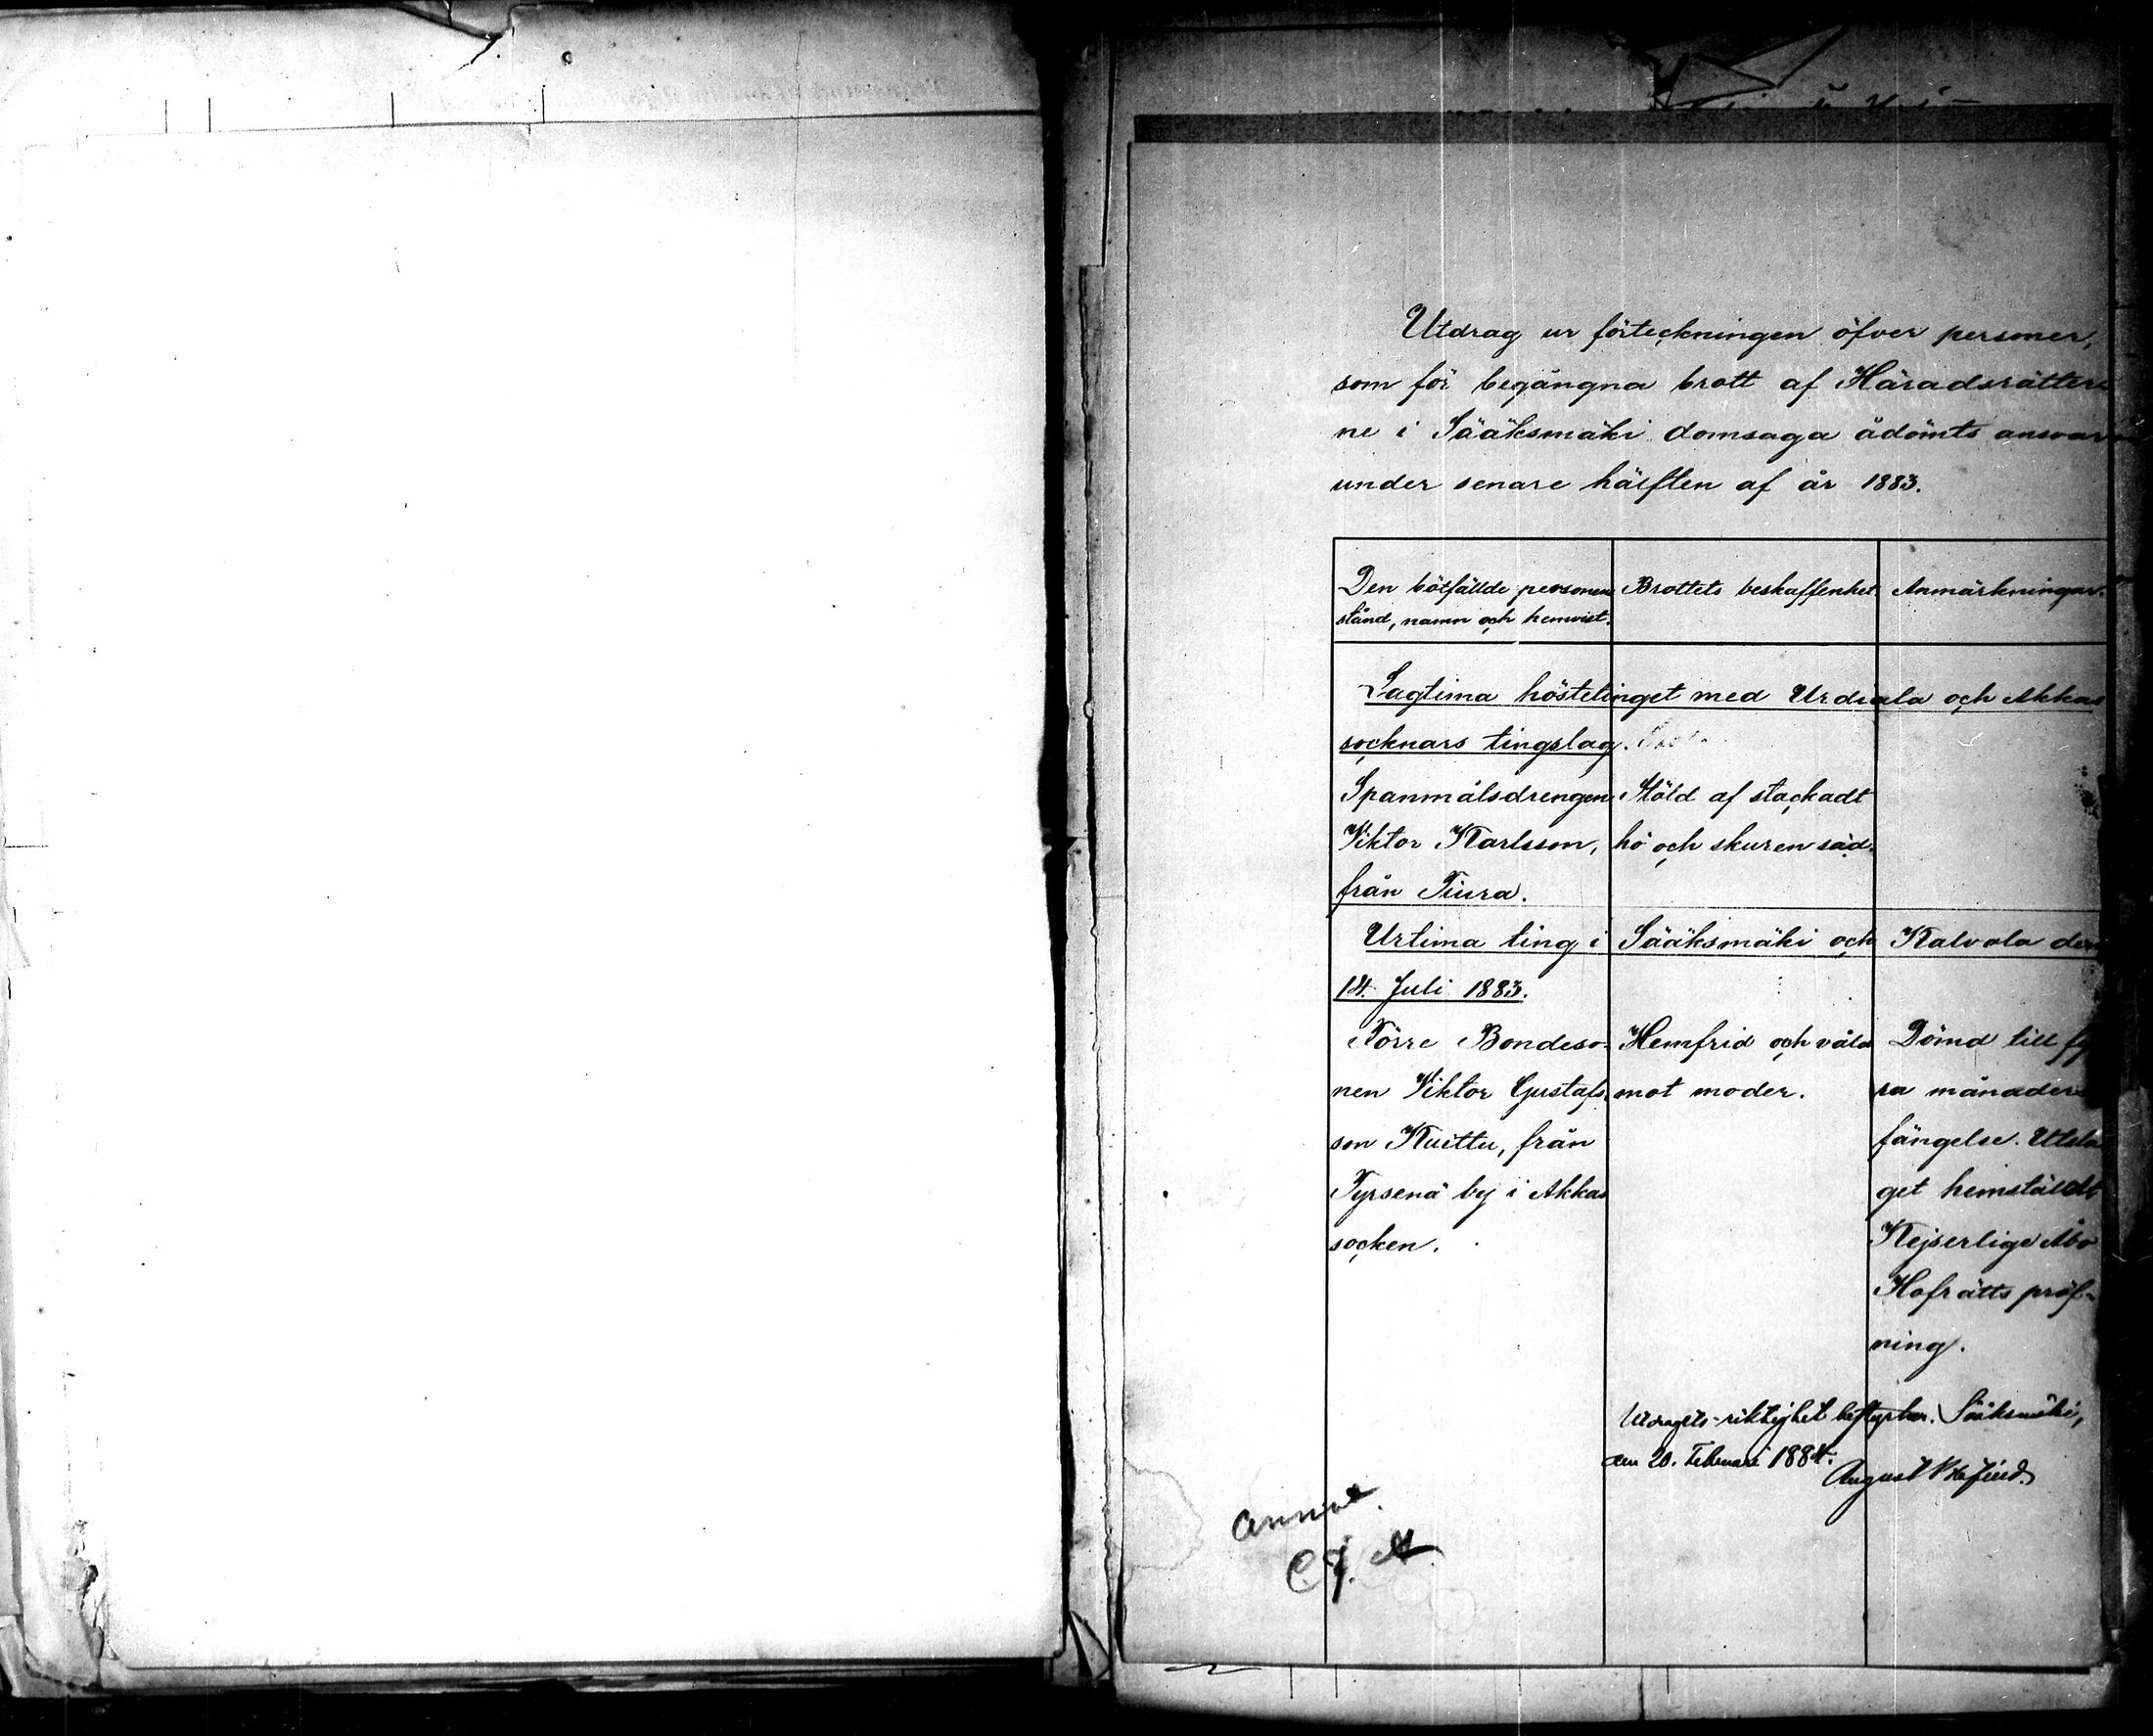 Utdrag ur förteckningen öfver personer,
som för begångna brott af Häradsrätter-
ne i Sääksmäki domsaga ådömts ansvar
under senare hälften af år 1883.
Den bötfällde personens
stånd, namn och hemvist.
Brottets beskaffenhet.
Anmärkningar.
Lagtima höstetinget med Urdiala och Akkas
socknars tingslag.
Spanmålsdrengen
Viktor Karlsson,
från Tiura.
Stöld af stackadt
hö och skuren säd.
Urtima ting i Sääksmäki och Kalvola den
14. Juli 1883.
Förre Bondeso-
nen Viktor Gustafs-
son Kuittu, från
Tyrsenä by i Akkas
socken.
Hemfrid och våld
mot moder.
Dömd till fy
ra månaders
fängelse. Utsla
get hemstäldt
Kejserlige Åbo
Hofrätts pröf-
ning.
Utdragets riktighet bestyrker. Sääksmäki,
den 20. Februari 1884.
August
C. J. A.